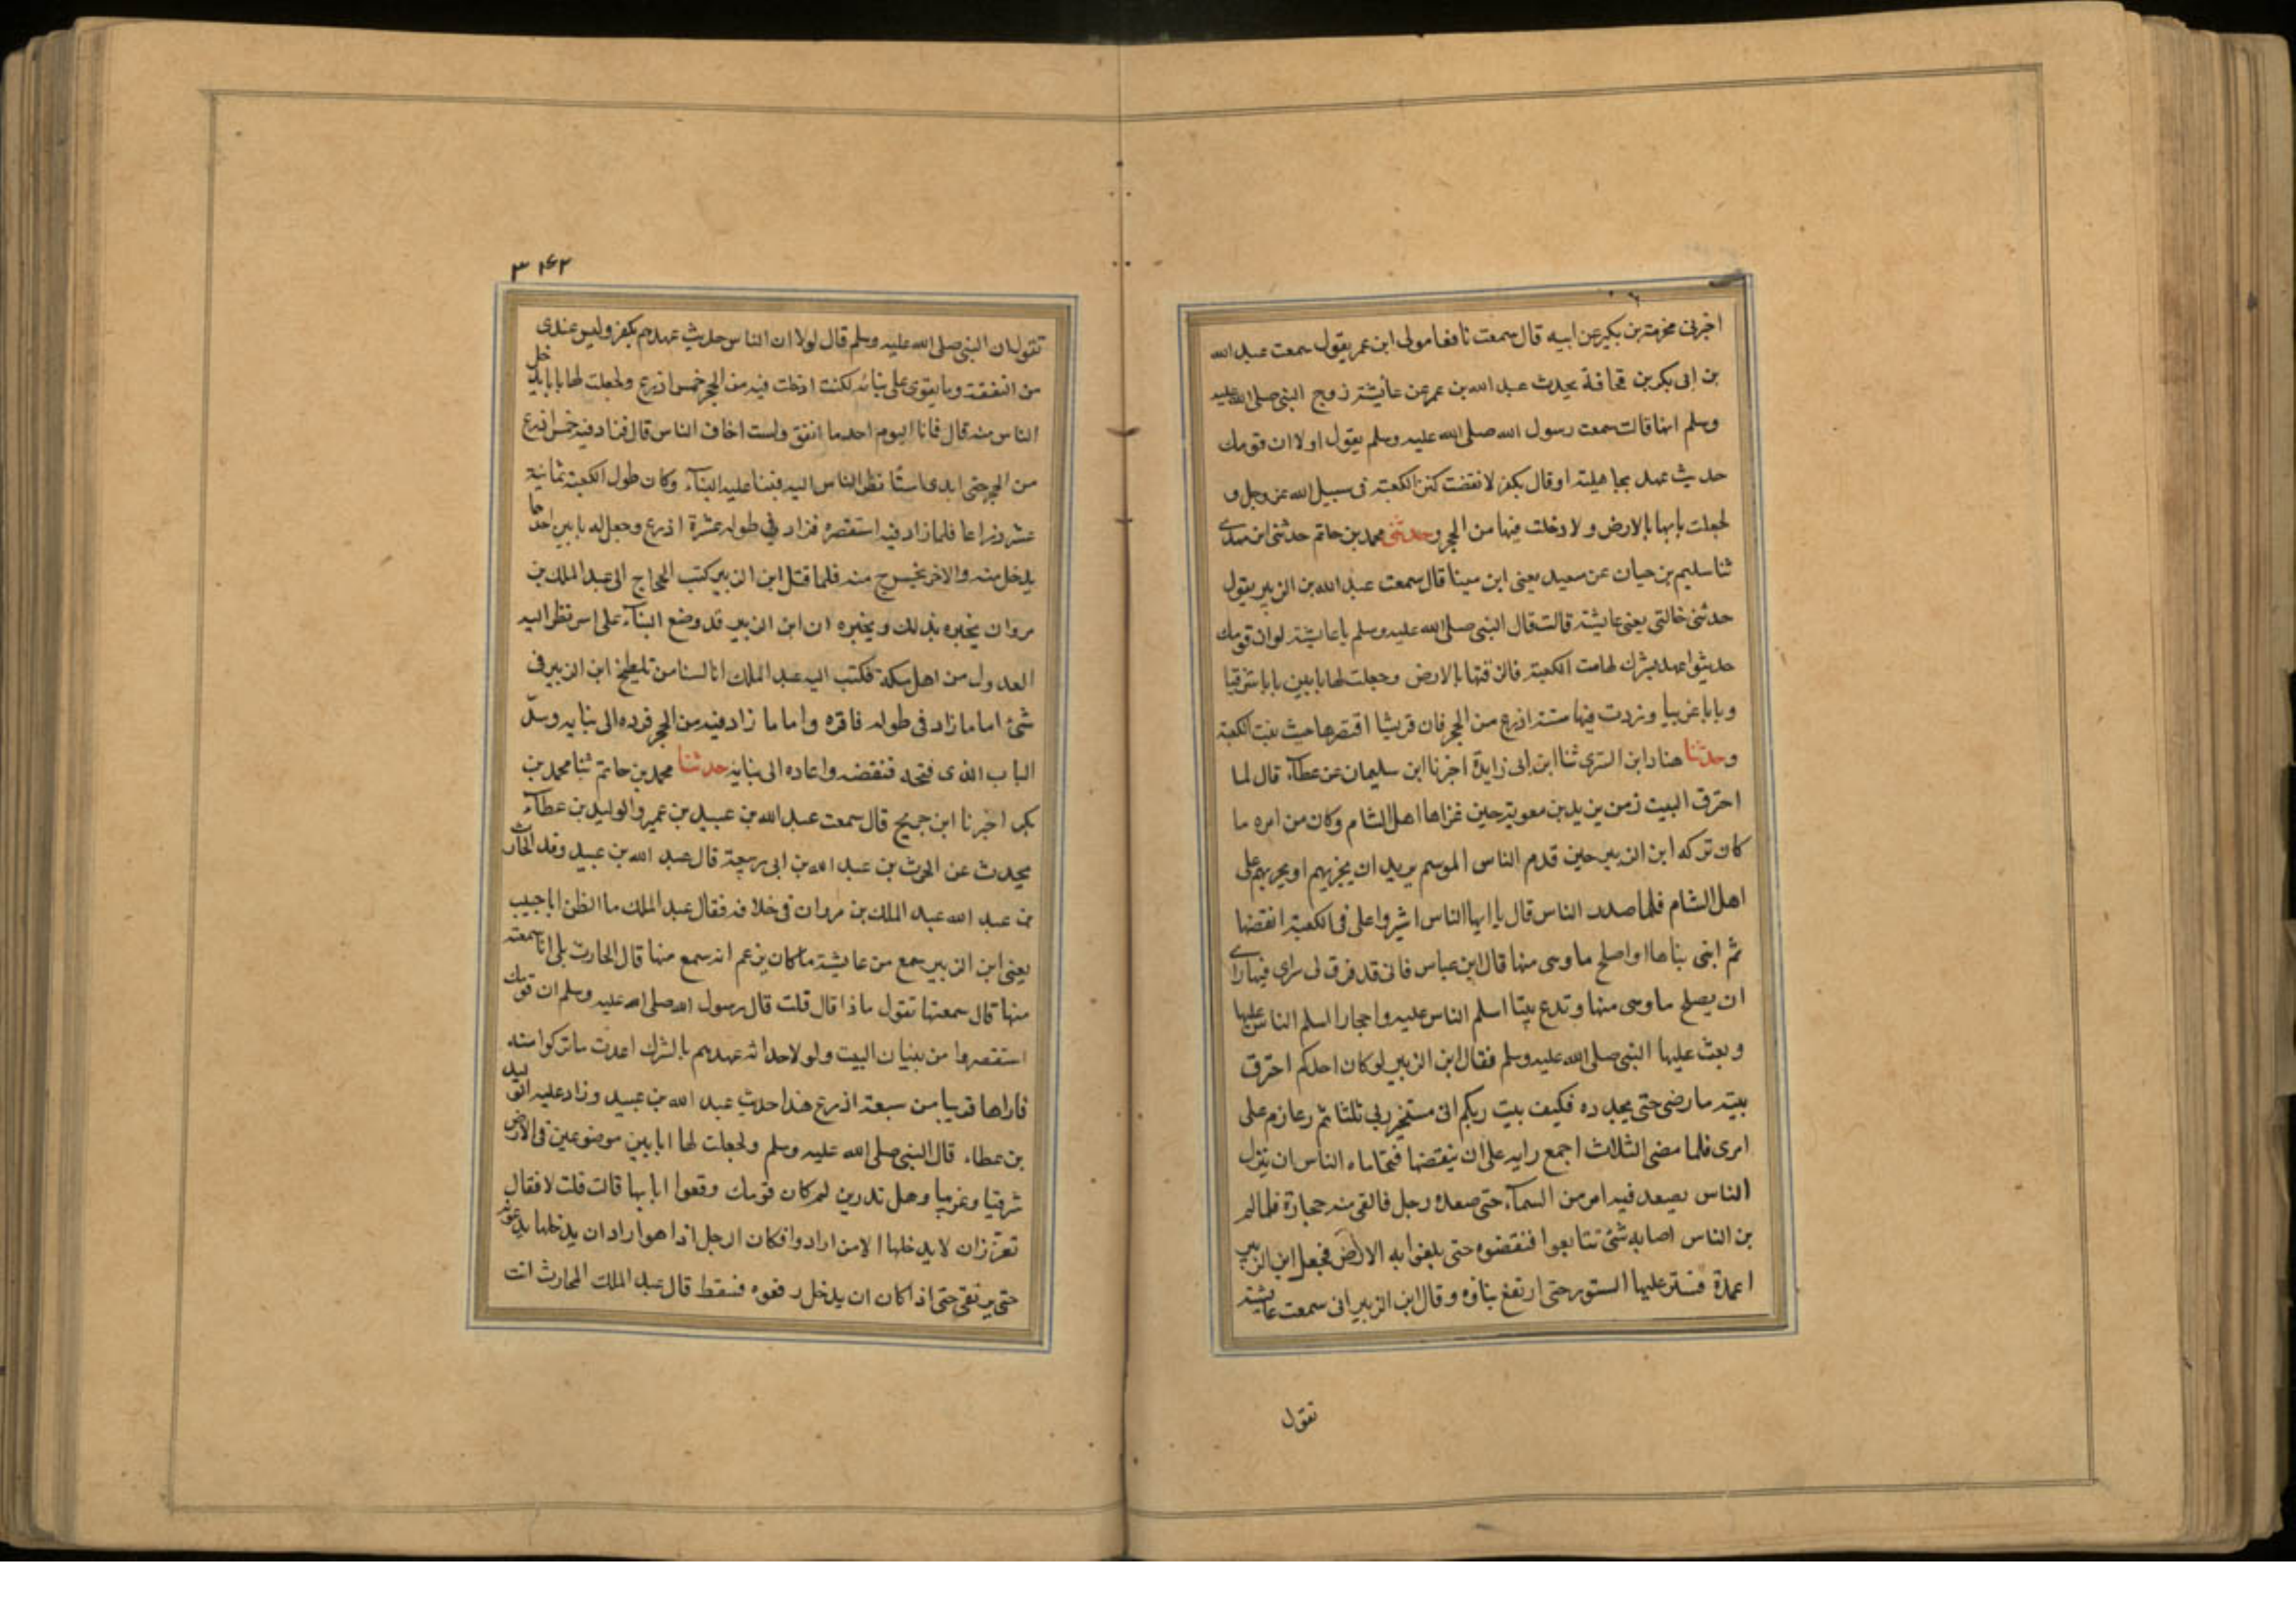 اخبرنى مخرمة بن بكير عن ابيه قال سمعت نافعا مولى ابن عمر يقول سمعت عبد الله
بن ابى بكر بن قحافة يحدث عبد الله بن عمر عن عائيشة زوج النبى صلى الله عليه
وسلم انها قالت سمعت رسول الله صلى الله عليه وسلم يقول لولا ان قومك
حديث عهد بجاهيلة او قال بكفر لانفقت كنز الكعبة فى سبيل الله عز وجل و
لجعلت بابها بالارض ولادخلت فيها من الحجر وحدثنى محمد بن حاتم حدثنى ابن مهدى
ثنا سليم بن حيان عن سعيد يعنى ابن مينا قال سمعت عبد الله بن الزبير يقول
حدثنى خالتى يعنى عايشة قالت قال النبى صلى الله عليه وسلم يا عايشة لو ان قومك
حديثوا عهد بشرك لهدمت الكعبة فالزقتها بالارض وجعلت لها بابين بابا شرقيا
وبابا غربيا وزدت فيها ستة اذرع من الحجر فان قريشا اقتصرها حيث بنت الكعبة
وحدثنا هناد ابن السرى ثنا ابن ابى زايدة اخبرنا ابن سليمان عن عطآء قال لما
احترق البيت زمن يزيد بن معوية حين غزاها اهل الشام وكان من امره ما
كان تركه ابن الزبير حين قدم الناس الموسم يريد ان يجزيهم او يحربهم على
اهل الشام فلما صدر الناس قال يا ايها الناس اشيروا على فى الكعبة انقضها
ثم ابنى بناها او اصلح ما وهى منها قال ابن عباس فانى قد فرق لى راى فيها راى
ان يصلح ما وهى منها وتدع بيتا اسلم الناس عليه واحجارا اسلم الناس عليها
وبعث عليها النبى صلى الله عليه وسلم فقال ابن الزبير لو كان احدكم احترق
بيته ما رضى حتى يجدده فكيف بيت ربكم انى مستخير ربى ثلثا ثم عازم على
امرى فلما مضى الثلاث اجمع رايه على ان ينقضها فتحاماه الناس ان ينزل
الناس يصعد فيه امر من السمآء حتى صعده رجل فالقى منه حجارة فلما لم
بن الناس اصابه شئ تتابعوا فنقضوه حتى بلغوا به الارض فجعل ابن الزبير
اعمدة فستر عليها الستور حتى ارتفع بناوه وقال ابن الزبير انى سمعت عايشة
تقول
٣٤٢
تقول ان النبى صلى الله عليه وسلم قال لولا ان الناس حديث عهدهم بكفر وليس عندى
من النفقة وما يقوى على بنائه لكنت ادخلت فيه من الحجر خمس اذرع ولجعلت لها بابا يدخل
الناس منه قال فانا اليوم اجد ما انفق ولست اخاف الناس قال فزاد فيه خمس اذرع
من الحجر حتى ابدى اسا نظر الناس اليه فبنا عليه البنآء وكان طول الكعبة ثمانية
عشر ذراعا فلما زاد فيه استقصره فزاد فى طوله عشرة اذرع وجعل له بابين احدها
يدخل منه والاخر يخرج منه فلما قتل ابن الزبير كتب الحجاج الى عبد الملك بن
مروان يخبره بذلك ويخبره ان ابن الزبير قد وضع البنآء على اس نظر اليه
العدول من اهل مكة فكتب اليه عبد الملك انا لسنا من تلطيخ ابن الزبير فى
شئ اما ما زاد فى طوله فاقره واما ما زاد فيه من الحجر فرده الى بنايه وسد
الباب الذى فتحه فنقضه واعاده الى بنايه حدثنا محمد بن حاتم ثنا محمد بن
بكر اخبرنا ابن جريج قال سمعت عبد الله بن عبيد بن عمير والوليد بن عطآء
يحدث عن الحرث بن عبد الله بن ابى ربيعة قال عبد الله بن عبيد وفد الحارث
بن عبد الله عبد الملك بن مروان فى خلافه فقال عبد الملك ما اظن ابا حبيب
يعنى ابن الزبير سمع من عايشة ما كان يزعم انه سمع منها قال الحارث بلى انا سمعته
منها قال سمعتها تقول ماذا قال قلت قال رسول الله صلى الله عليه وسلم ان قومك
استقصروا من بنيان البيت ولولا حداثة عهدهم بالشرك اعدت ما تركوا منه
فاراها قريبا من سبعة اذرع هذا حديث عبد الله بن عبيد وزاد عليه الوليد
بن عطاء قال النبى صلى الله عليه وسلم ولجعلت لها بابين موضوعين فى الارض
شرقيا وغربيا وهل تدرين لم كان قومك رفعوا بابها قالت قلت لا فقال
تعززان لا يدخلها الا من ارادوا فكان الرجل اذا هو اراد ان يدخلها يدعونه
حتى يرتقى حتى اذا كان ان يدخل رفعوه فسقط قال عبد الملك للحارث انت